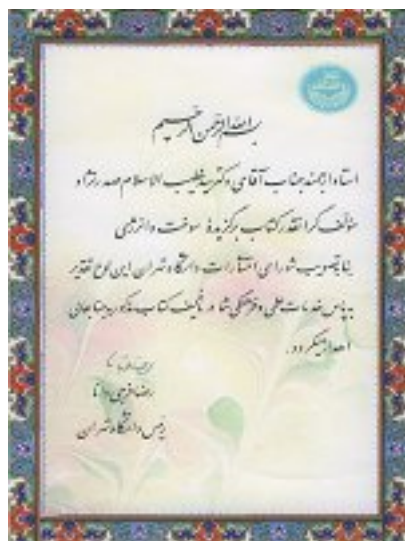 بسم الله الرحمن الرحیم
استاد ارجمند جناب آقای دکتر سید خطیب الاسلام صدرنژاد
مؤلف گرانقدر کتاب برگزیدهٔ سوخت و انرژی
بنا بتصویب شورای انتشارات دانشگاه تهران این لوح تقدیر
به پاس خدمات علمی و فرهنگی شما در تألیف کتاب مذکور به جنابعالی
اهداء میگردد.
رضا فرجی دانا
رئیس دانشگاه تهران